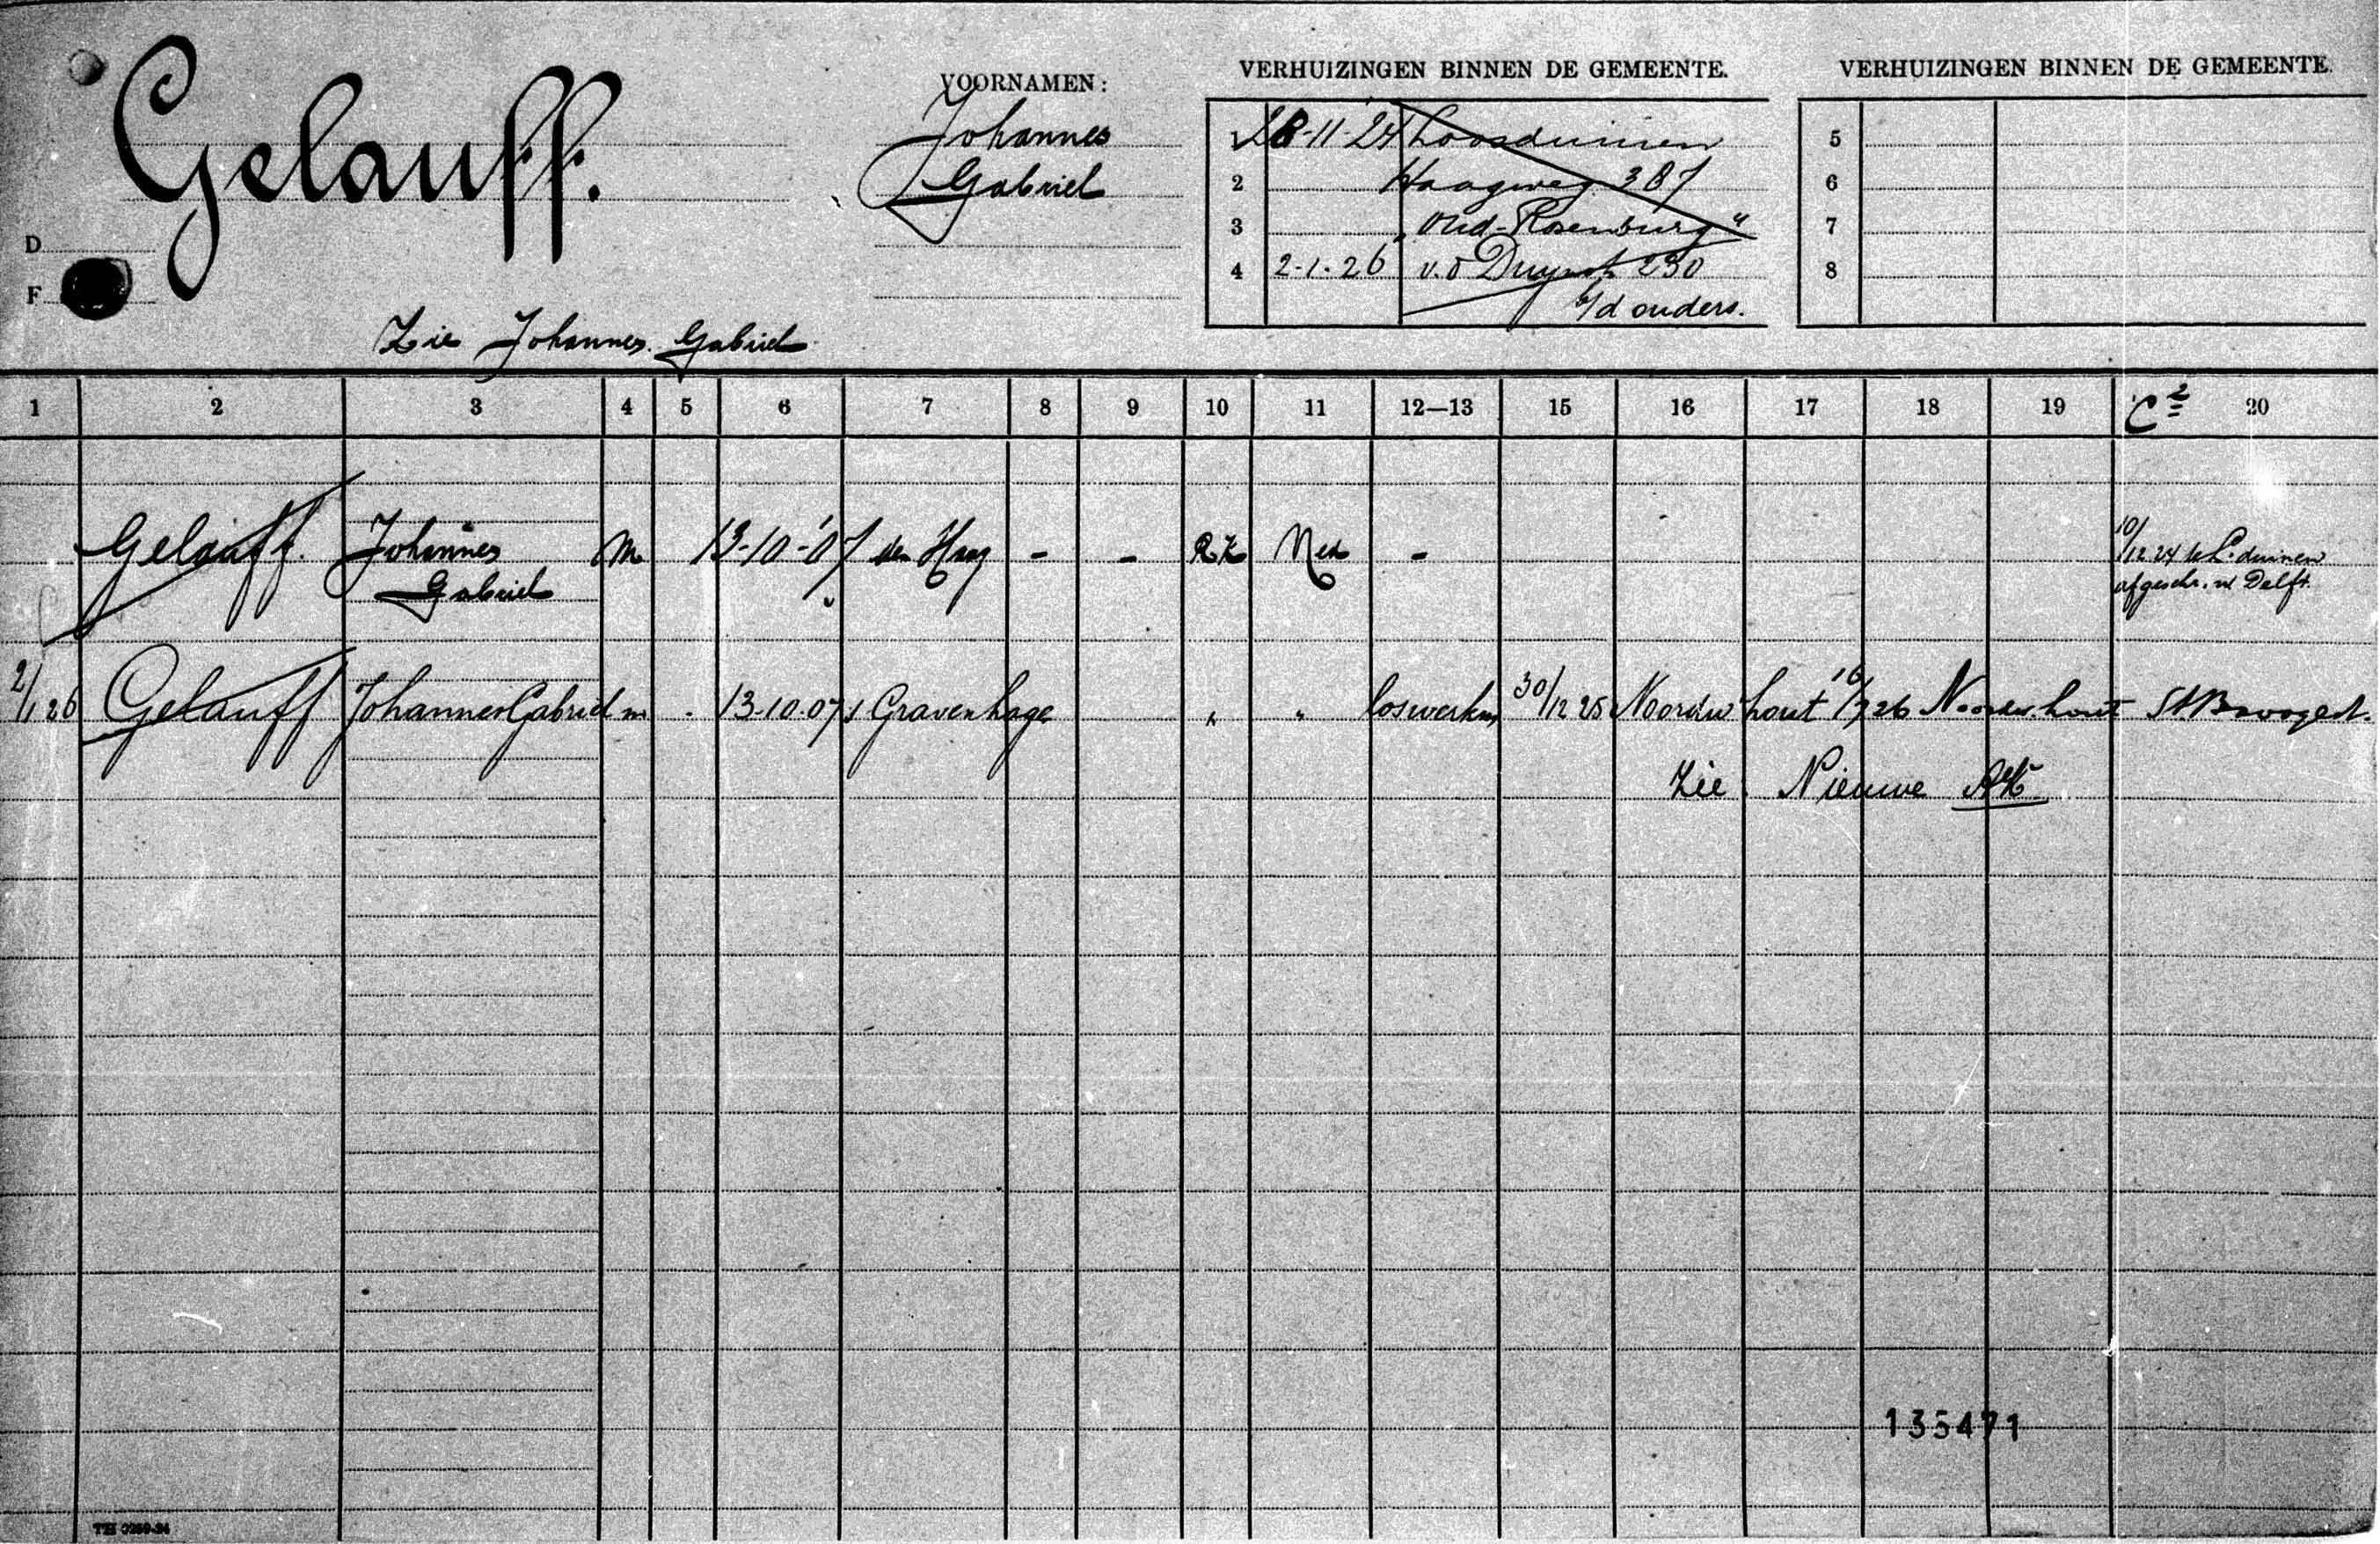 Gelauff.
VOORNAMEN:
Johannes
Gabriel
D
F
Zie Johannes Gabriel
VERHUIZINGEN BINNEN DE GEMEENTE.
1 28-11-24 Loosduinen
2 Haagweg 387
3 „Oud-Rosenburg"
4 2-1-26 v.d Duynstr 230
b/d ouders.
VERHUIZINGEN BINNEN DE GEMEENTE.
5
6
7
8
1 2 3 4 5 6 7 8 9 10 11 12—13 15 16 17 18 19 C2 20
Gelauff. Johannes Gabriel M 13-10-07 den Haag - - R.K Ned - 10/12 24 L.duinen
afgeschr. n/ Delft.
2/1 26 Gelauff Johannes Gabriel m . 13-10-07 s Gravenhage " " loswerkm 30/12 25 Noordw hout 16/7 26 Noordw.hout St. Bavogest.
Zie Nieuwe RK
135471